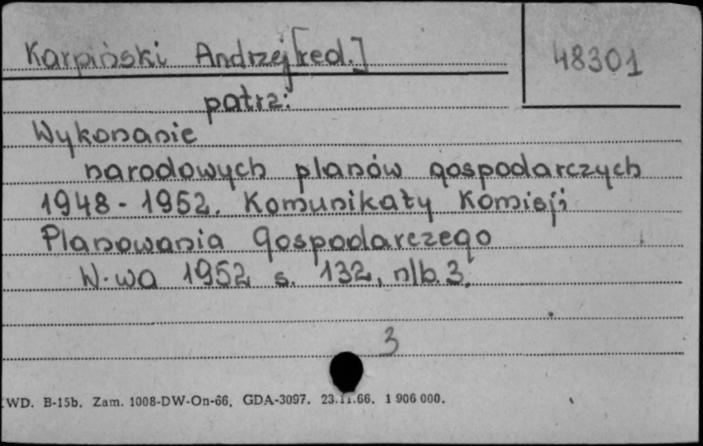 Karpiński Andrzej [red.]
48301
patrz:
Wykonanie
narodowych planów gospodarczych
1948 - 1952. Komunikaty Komisji
Planowania Gospodarczego
W-wa 1952 s. 132, nlb. 3.
3
WD. B-15b. Zam. 1008-DW-On-66. GDA-3097. 23.11.66. 1 906 000.